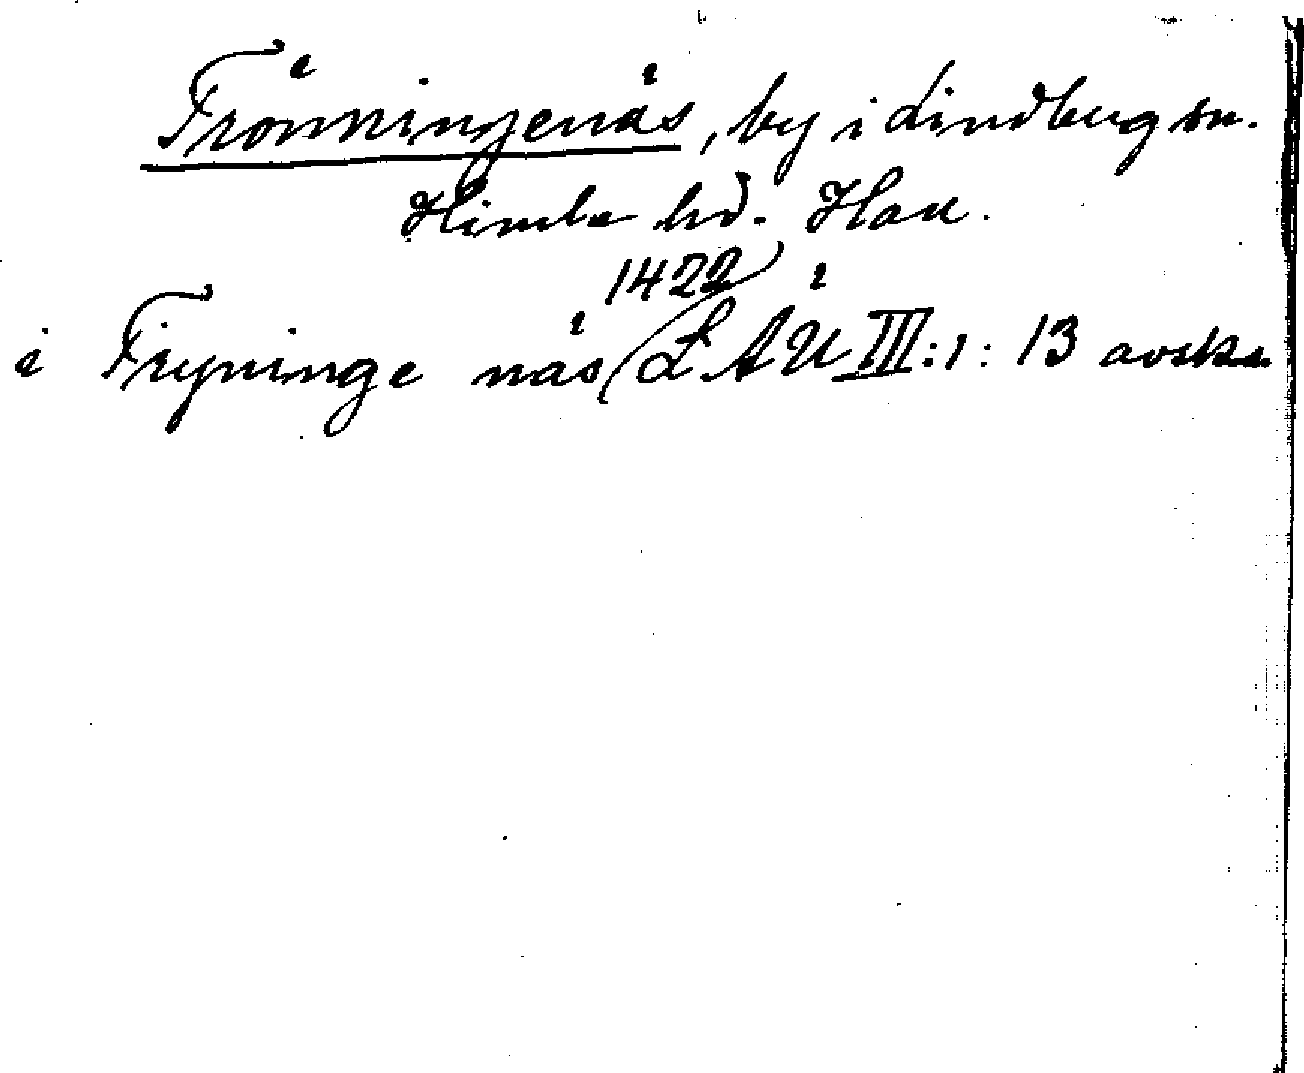 Trönningenäs, by i Lindberg sn.
Himle hd. Hall.
1422
i Tryninge näs LÄU III:1:13 avskr.